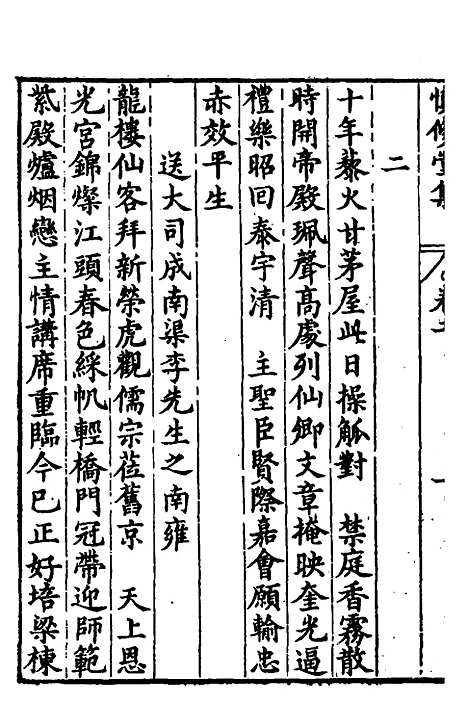 二
十年藜火甘茅屋此日操觚對　禁庭香霧散
時開帝殿珮聲高處列仙卿文章掩映奎光逼
禮樂昭回泰宇清　主聖臣賢際嘉會願輸忠
赤效平生
送大司成南渠李先生之南雍
龍樓仙客拜新榮虎觀儒宗蒞舊京　天上恩
光宮錦燦江頭春色綵帆輕橋門冠帶迎師範
紫殿爐烟戀主情講席重臨今已正好培梁棟